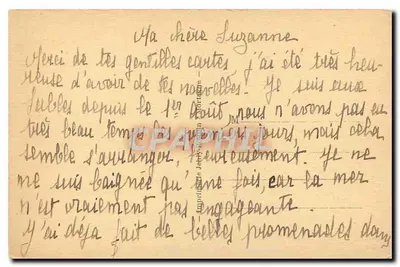 Ma chère Suzanne
Merci de tes gentilles cartes j'ai été très heu-
reuse d'avoir de tes nouvelles. Je suis aux
Sables depuis le 1er Août, nous n'avons pas eu
très beau temps les premiers jours, mais cela
semble s'arranger, heureusement. Je ne
me suis baignée qu'une fois, car la mer
n'est vraiment pas engageante.
J'ai déjà fait de belles promenades dans
CPHPOST